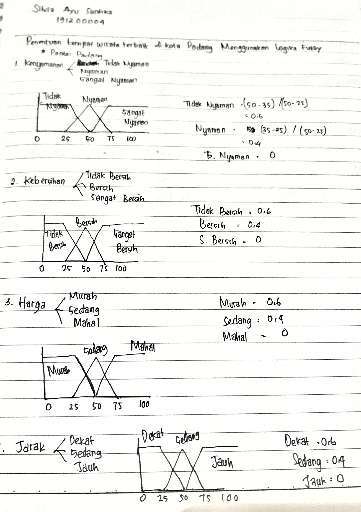 Silvia Ayu Santika
191200004
Penentuan tempat wisata terbaik di kota Padang Menggunakan Logika Fuzzy
* Pantai Padang
1. Kenyamanan
Tidak Nyaman
Nyaman
Sangat Nyaman
Tidak Nyaman
Nyaman
Sangat Nyaman
0 25 50 75 100
Tidak Nyaman = (50-35) / (50-25)
= 0.6
Nyaman = (35-25) / (50-25)
= 0.4
S. Nyaman = 0
2. Kebersihan
Tidak Bersih
Bersih
Sangat Bersih
Tidak Bersih
Bersih
Sangat Bersih
0 25 50 75 100
Tidak Bersih = 0.6
Bersih = 0.4
S. Bersih = 0
3. Harga
Murah
Sedang
Mahal
Murah
Sedang
Mahal
0 25 50 75 100
Murah = 0.6
Sedang = 0.4
Mahal = 0
Jarak
Dekat
Sedang
Jauh
Dekat
Sedang
Jauh
0 25 50 75 100
Dekat = 0.6
Sedang = 0.4
Jauh = 0